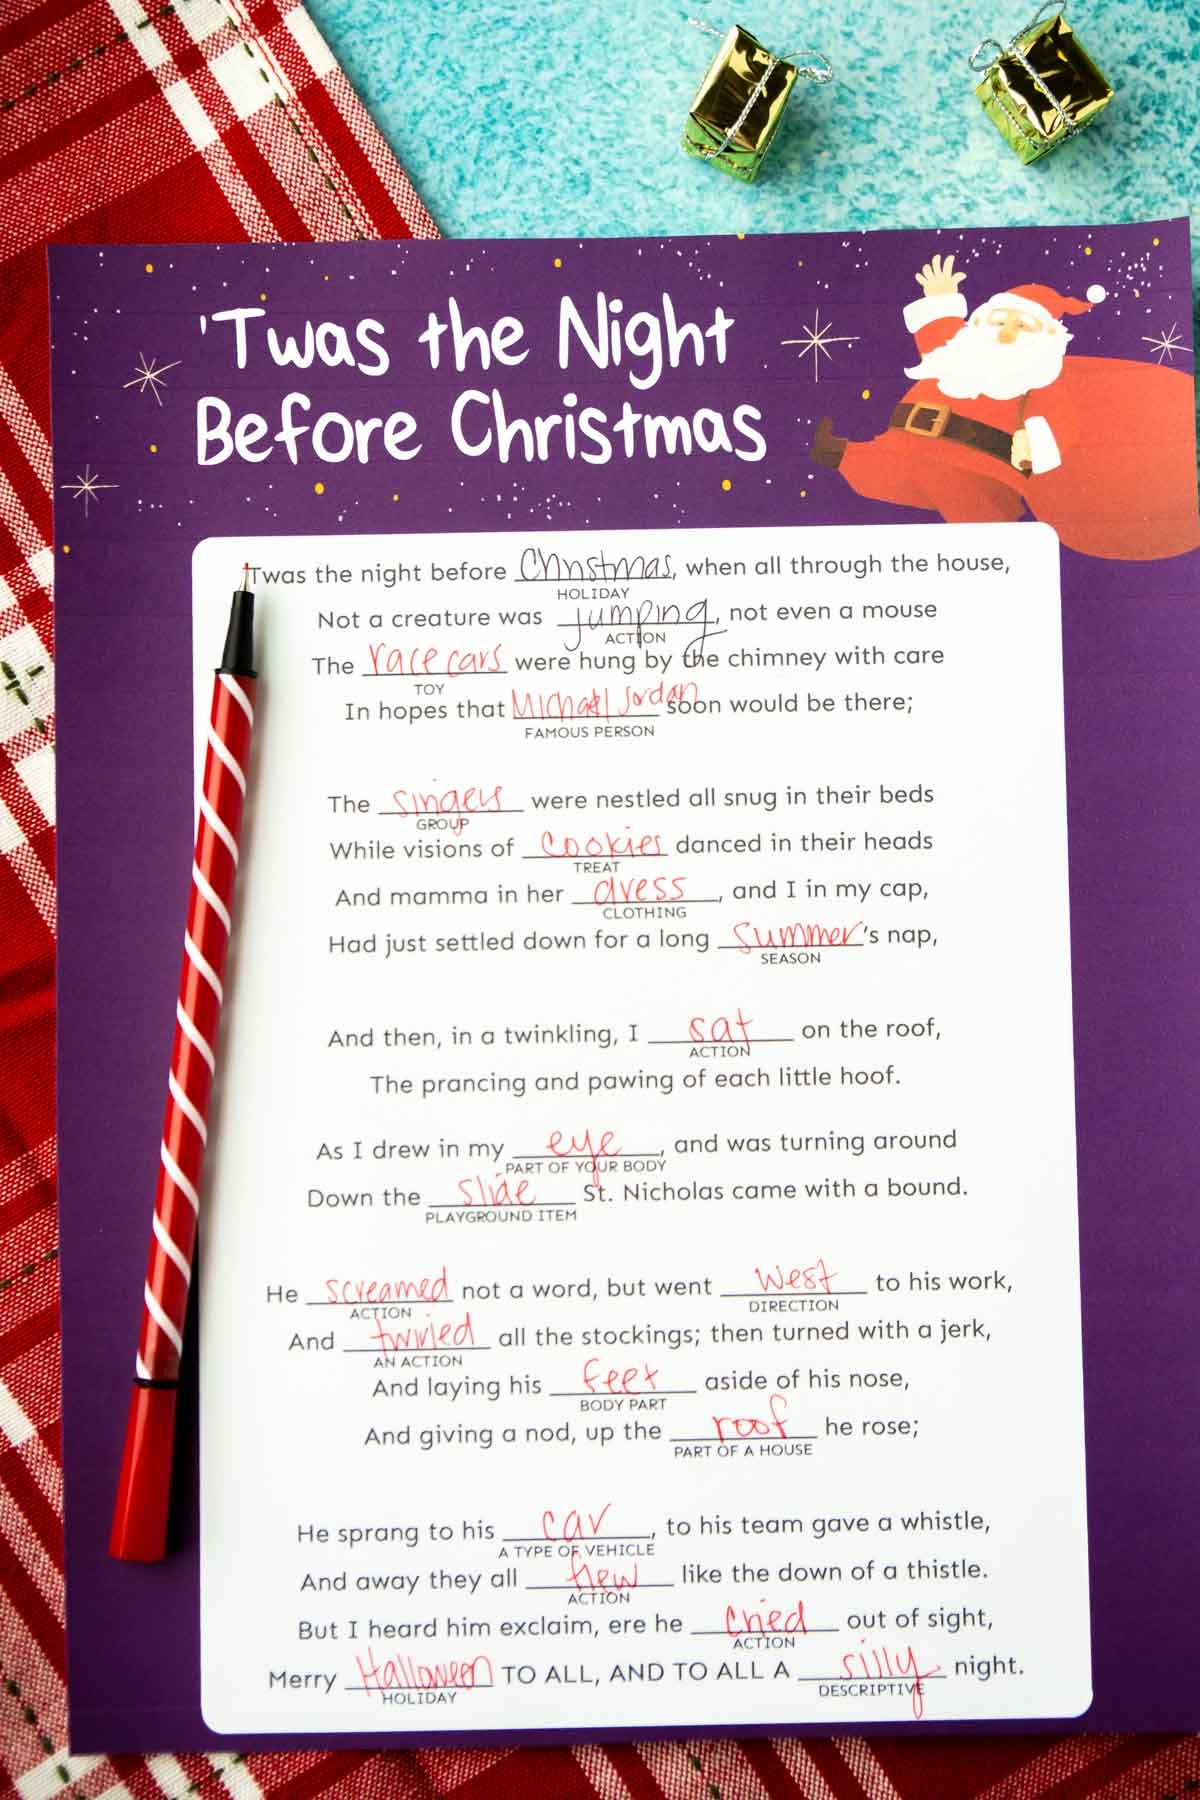 'Twas the Night
Before Christmas
Twas the night before Christmas, when all through the house,
HOLIDAY
Not a creature was jumping, not even a mouse
ACTION
The race cars were hung by the chimney with care
TOY
In hopes that Michael Jordan soon would be there;
FAMOUS PERSON
The singers were nestled all snug in their beds
GROUP
While visions of cookies danced in their heads
TREAT
And mamma in her dress, and I in my cap,
CLOTHING
Had just settled down for a long summer's nap,
SEASON
And then, in a twinkling, I sat on the roof,
ACTION
The prancing and pawing of each little hoof.
As I drew in my eye, and was turning around
PART OF YOUR BODY
Down the slide St. Nicholas came with a bound.
PLAYGROUND ITEM
He screamed not a word, but went west to his work,
ACTION DIRECTION
And twirled all the stockings; then turned with a jerk,
AN ACTION
And laying his feet aside of his nose,
BODY PART
And giving a nod, up the roof he rose;
PART OF A HOUSE
He sprang to his car, to his team gave a whistle,
A TYPE OF VEHICLE
And away they all flew like the down of a thistle.
ACTION
But I heard him exclaim, ere he cried out of sight,
ACTION
Merry Halloween TO ALL, AND TO ALL A silly night.
HOLIDAY DESCRIPTIVE